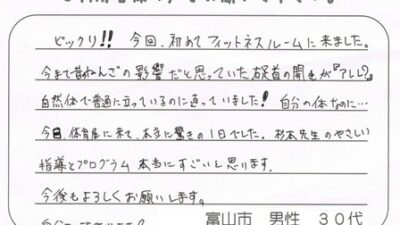 ビックリ!! 今回、初めてフィットネスルームに来ました。
今まで昔ねんざの影響だと思っていた右足首の開きが『アレ?』
自然体で普通に立っているのに違っていました! 自分の体なのに…
今日、体育屋に来て、本当に驚きの1日でした。杉本先生のやさしい
指導とプログラム 本当にすごいと思います。
今後もよろしくお願いします。
富山市 男性 30代